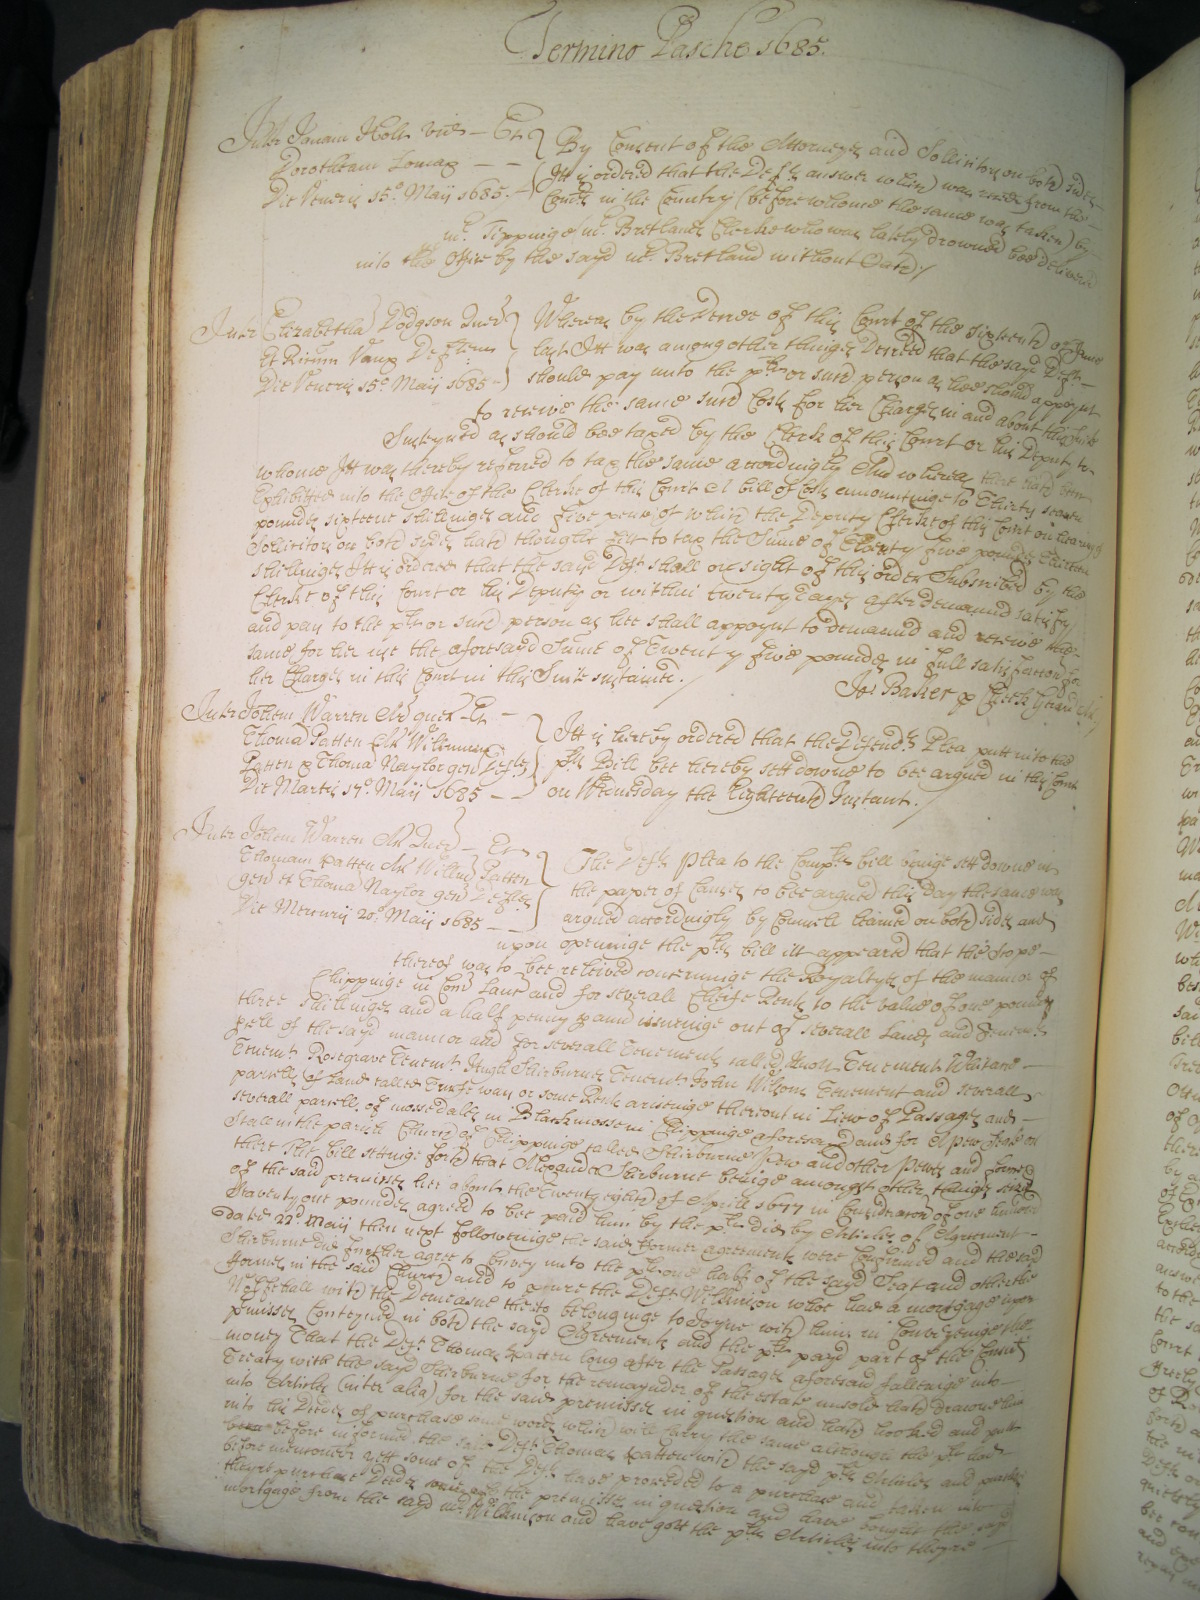 Termino Pasche 1685.
Inter Janam Holt vid – Et
Dorotheam Lomax – –
Die Veneris 15º Maij 1685. –
By Consent of the Attorneyes and Sollicitors on both sides
Itt is ordered that the Defts answer which was sent from the
Comrs in the Country (before whome the same was taken) by
mr. Tippinge mr. Bretlands Clerke who was lately drowned bee delivered
into the Office by the sayd mr. Bretland without Oath /
Inter Elizabetha Dodgson Quer
Et Ricum Vaux Deften
Die Veneris 15º Maij 1685 –
Whereas by the Decree of this Court of the sixteenth of June
last Itt was amongst other thinges Decreed that the sayd Deft
should pay unto the plt or such person as shee should appoynt
to receive the same such Costs for her Charges in and about this suite
Susteyned as should bee taxed by the Clerk of this Court or his Deputy to
whome Itt was thereby referred to tax the same accordingly And whereas there hath been
Exhibitted into the Office of the Clerke of this Court A bill of Costs amountinge to Thirty seaven
pounds sixteene shillinges and five pence of which the Deputy Clerke of this Court on hearing
Sollicitors on both sides hath thought fitt to tax the Sume of Twenty five pounds
shillinges Itt is ordered that the sayd Deft shall on sight of this order Subscribed by the
Clerke of this Court or his Deputy or within twenty dayes after demannd satisfy
and pay to the plt or such person as shee shall appoynt to demannd and receive the
same for her use the aforesaid Sume of Twenty five pounds in full satisfaction for
her Charges in this Court in this Suite sustained. /
Jos: Baker p Clerk
Inter Johem Warren Ar quer – Et –
Thoma Patten Ar Willmum
Patten & Thoma Naylor gen Deftes
Die Martis 17º. Maij 1685 – –
Itt is hereby ordered that the Defendts Plea putt into the
plts Bill bee hereby sett downe to bee argued in this Court
on Wednesday the Eighteenth Instant. /
Inter Johem Warren Ar Quer – Et
Thomam Patten Ar Willmu Patten
gen et Thoma Naylor gen Deftes
Die Mercurij 20º. Maij 1685 – –
The Defts Plea to the Complts bill beinge sett downe in
the paper of Causes to bee argued this day the same was
argued accordingly by Councell learned on both sides and
upon openinge the plts bill itt appeared that the scope
thereof was to bee releived concerninge the Royaltyes of the mannor of
Chippinge in Com Lanc and for severall Cheife Rents to the value of one pound
three shillinges and a half penny p ann issueinge out of severall Lands and Tenemts
pcell of the sayd mannor and for severall Tenements called Knott Tenement
Tenemt Rosegrave Tenemt Hugh Shirburnes Tenemt John Wilsons Tenement and severall
parcells of Land called Turfe way or some Rents ariseinge thereout in Liew of Passages and
severall parcells of mossedales in Blackmosse in Chippinge aforesayd and for A pew Seate or
Stall in the parish Church of Chippinge called Shirburnes Pew and other Pewes and formes
there The bill settinge forth that Alexander Shirburne beinge amongst other thinges seized
of the said premisses hee about the Twenty eighth of Aprill 1677 in Consideracon of one hundred
Seaventy one pounds agreed to bee paid him by the plt Did by Articles of Agreement
dated 22d May then next followeinge the said former agreements were Confirmed and the said
Shirburne did further agree to Convey unto the plt one half of the sayd Seat and other the
formes in the said Church and to pcure the Deft Wilkinson whoe had a mortgage upon
with the Demeasne thereto belonginge to Joyne with him in Conveyeinge the
pmisses Conteyned in both the sayd Agreements and the plt payd part of the
money That the Deft Thomas Patten long after the Passages aforesaid falleinge into
Treaty with the sayd Shirburne for the remaynder of the estate unsold hath drawne him
into Articles (inter alia) for the said premisses in question and hath hooked and putt
into his Deedes of purchase some words which will carry the same although the plt had
before informed the said Deft Thomas Patten with the sayd plts Articles and purchase
before mentioned yett some of the Defts have proceeded to a purchase and taken into
theyre purchase Deedes the premisses in question and have bought the sayd
mortgage from the sayd mr. Wilkinson and have gott the plts Articles into theyre